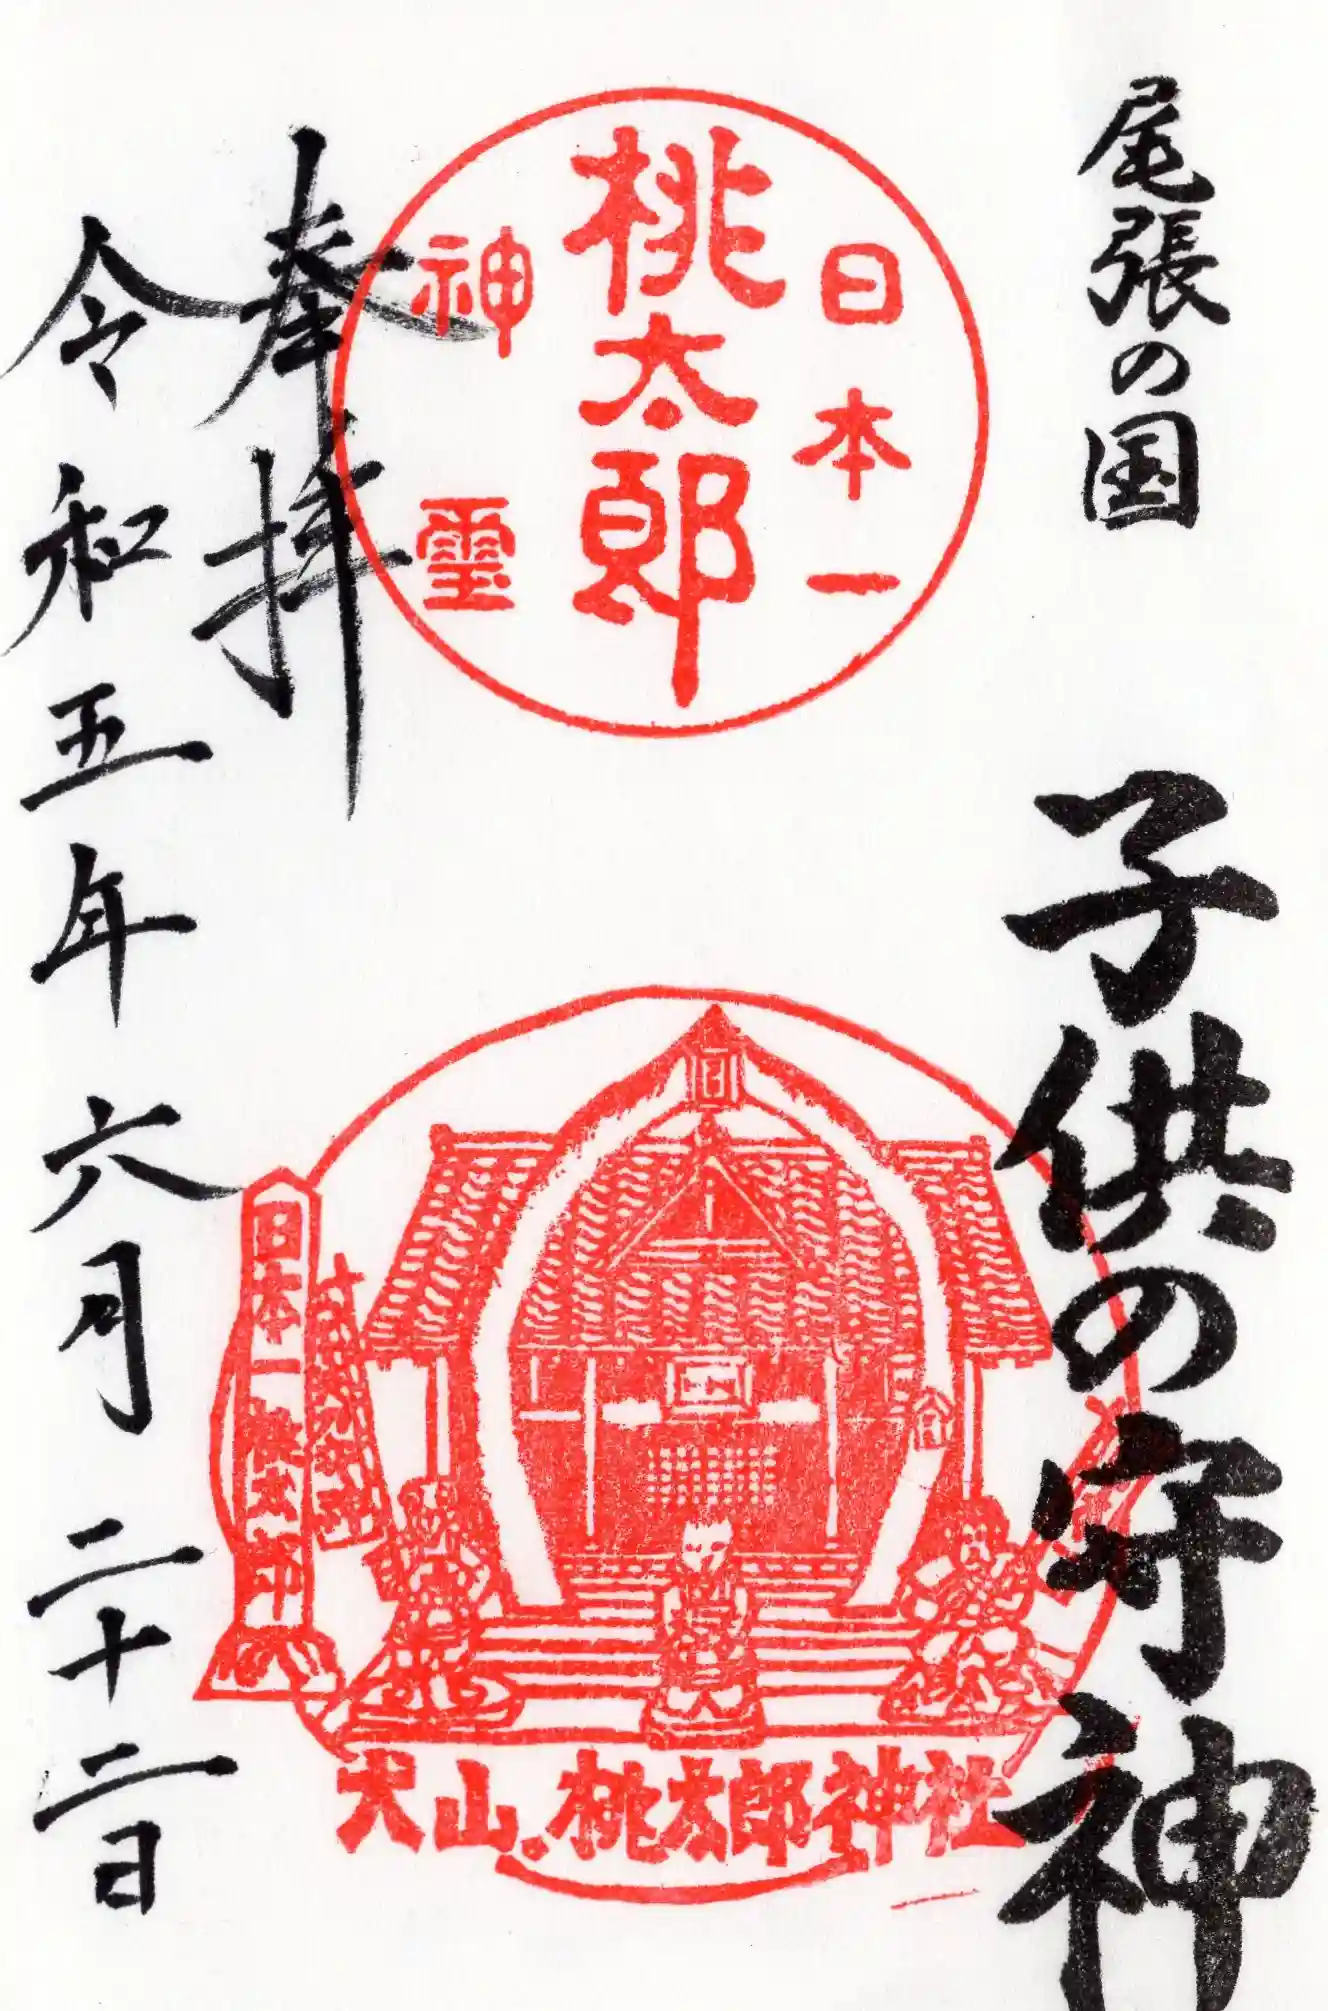 尾張の国
子供の守神
日本一
桃太郎
神霊
奉拝
令和五年六月二十二日
日本一桃太郎
犬山・桃太郎神社